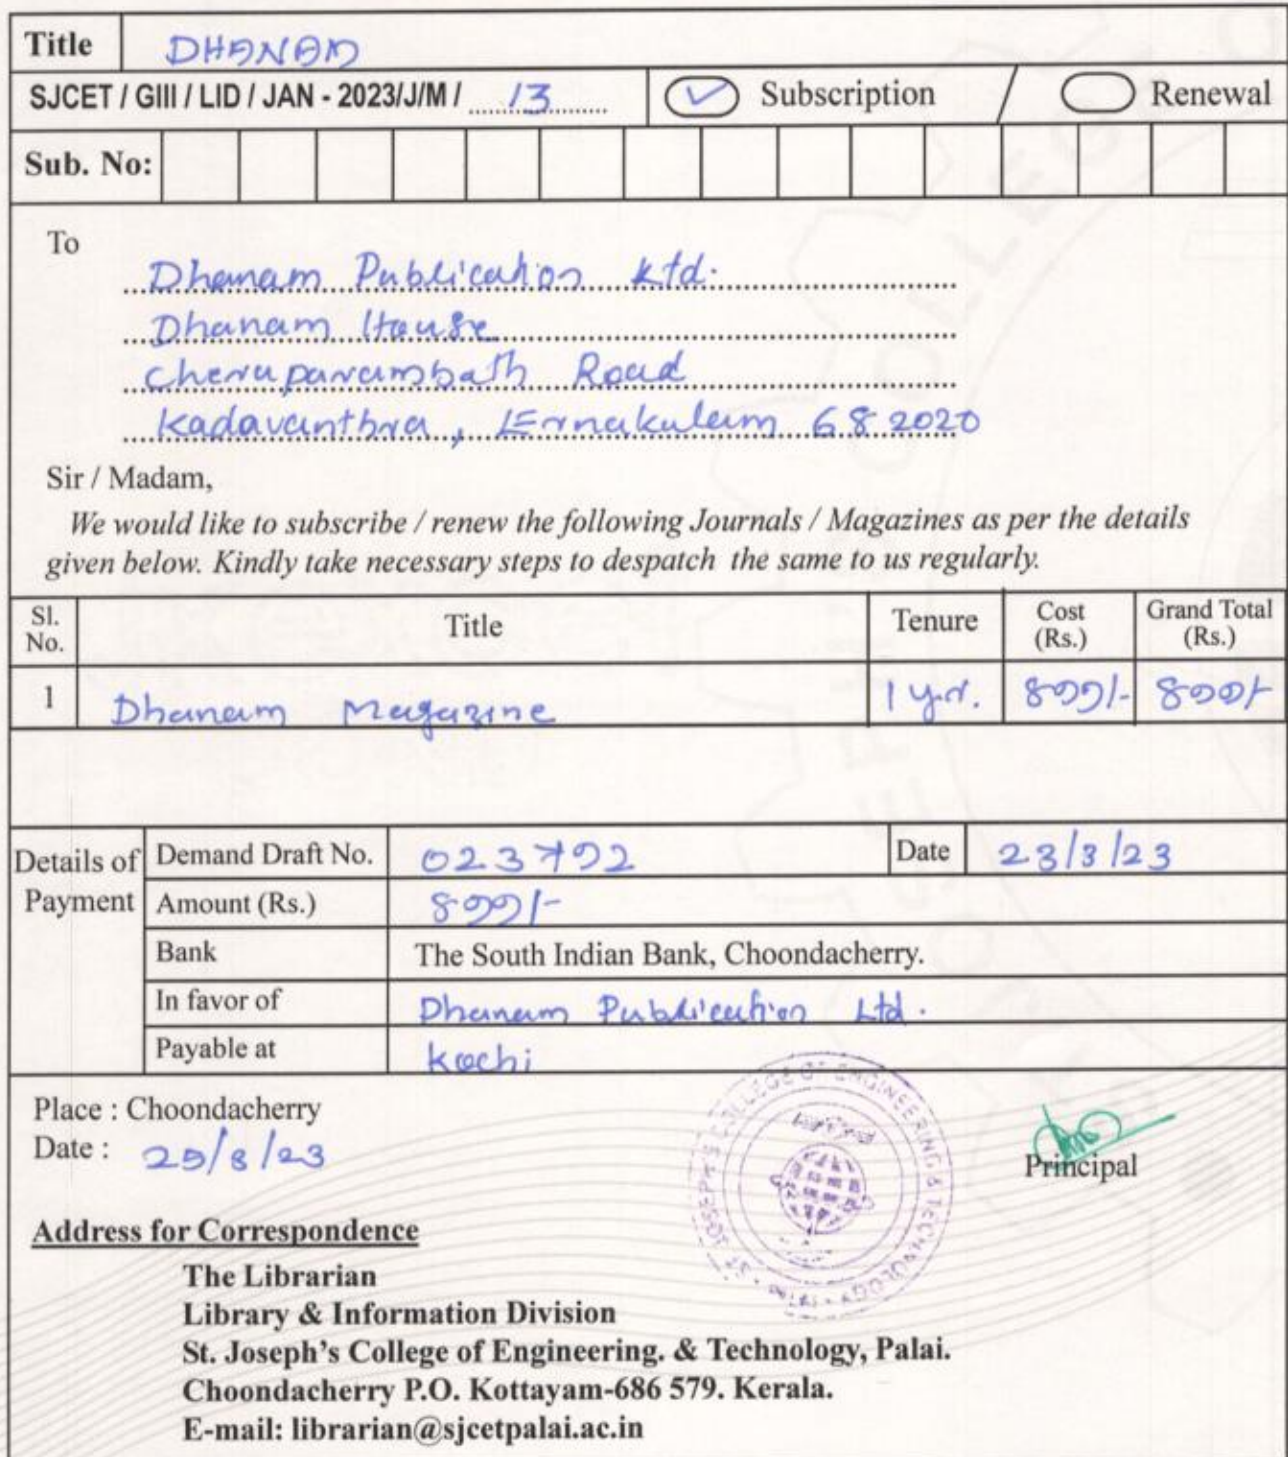 Title DHANAM
SJCET / GIII / LID / JAN - 2023/J/M / 13 Subscription / Renewal
Sub. No:
To
Dhanam Publication Ltd.
Dhanam House
Cheruparambath Road
Kadavanthra, Ernakulam 682020
Sir / Madam,
We would like to subscribe / renew the following Journals / Magazines as per the details
given below. Kindly take necessary steps to despatch the same to us regularly.
Sl. No. Title Tenure Cost (Rs.) Grand Total (Rs.)
1 Dhanam Magazine 1 yr. 800/- 800/-
Details of Payment
Demand Draft No. 023702 Date 23/3/23
Amount (Rs.) 800/-
Bank The South Indian Bank, Choondacherry.
In favor of Dhanam Publication Ltd.
Payable at Kochi
Place : Choondacherry
Date : 25/3/23
Principal
ST. JOSEPH'S COLLEGE OF ENGINEERING & TECHNOLOGY
Address for Correspondence
The Librarian
Library & Information Division
St. Joseph's College of Engineering. & Technology, Palai.
Choondacherry P.O. Kottayam-686 579. Kerala.
E-mail: librarian@sjcetpalai.ac.in